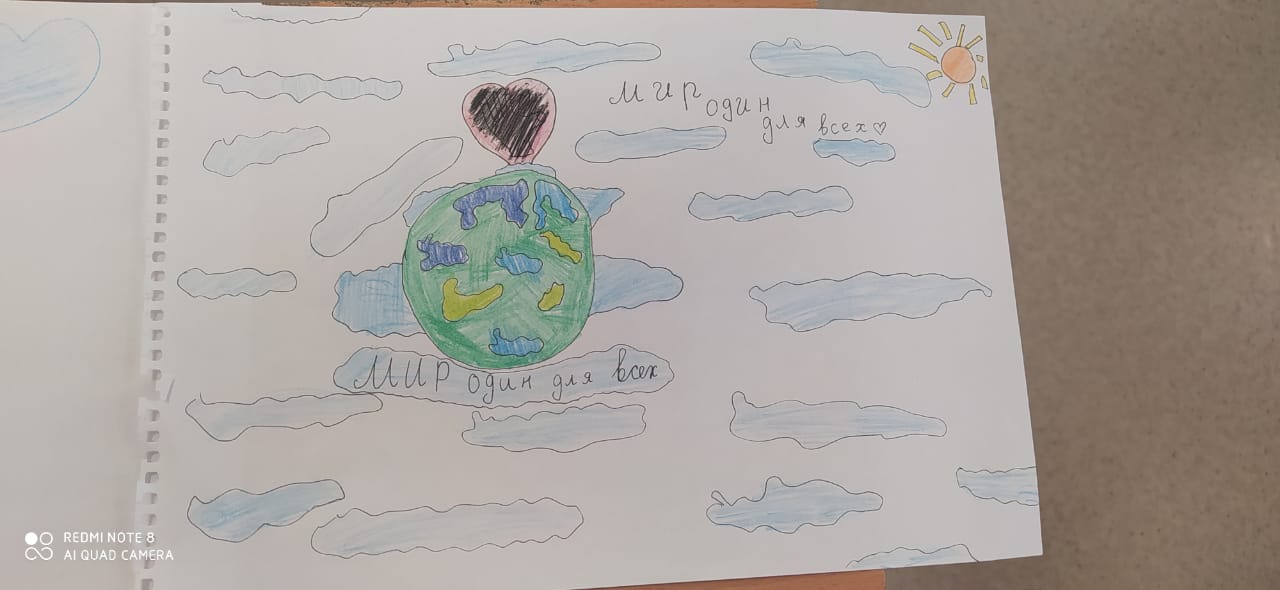 Мир
один
для всех♡
Мир один для всех
REDMI NOTE 8
AI QUAD CAMERA